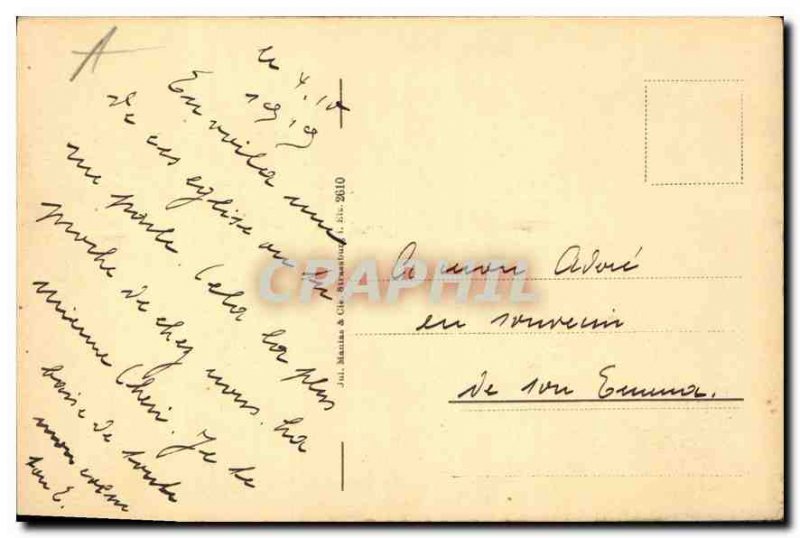 A
le 4.10
1919
En voila une
de ces eglise on te
me parle. Cela la plus
proche de chez nous. La
mienne Cheri. Je te
baise de toute
mon coeur
ton E.
Jul. Manias & Cie. Strassburg i. Els. 2610
CPAPHIL
a mon Adoré
en souvenir
de son Emma.